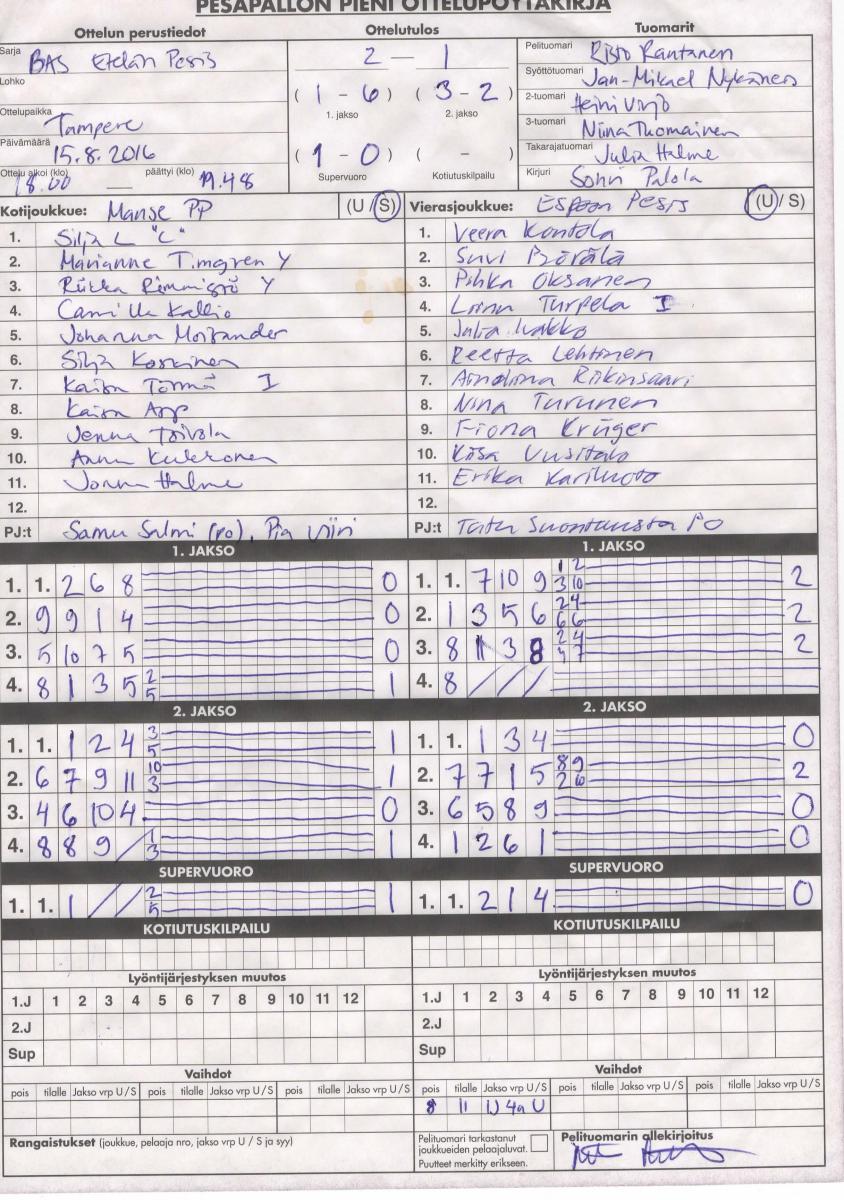 PESÄPALLON PIENI OTTELUPÖYTÄKIRJA
Ottelun perustiedot Ottelutulos Tuomarit
Sarja BAS Etelän Pesis
Lohko
Ottelupaikka Tampere
Päivämäärä 15.8.2016
Ottelu alkoi (klo) 18.00 päättyi (klo) 19.48
2 — 1
( 1 - 6 ) ( 3 - 2 )
1. jakso 2. jakso
( 1 - 0 ) ( - )
Supervuoro Kotiutuskilpailu
Pelituomari Risto Rantanen
Syöttötuomari Jan-Mikael Nykänen
2-tuomari Heini
3-tuomari Niina Tuomainen
Takarajatuomari Julia Halme
Kirjuri Sohvi Palola
Kotijoukkue: Manse PP (U / S) Vierasjoukkue: Espoon Pesis (U / S)
1. Silja L "C" 1. Veera Kontola
2. Marianne Timgren Y 2. Suvi Pörälä
3. Riikka Y 3. Pihka Oksanen
4. Camilla Kallio 4. Turpela I
5. Johanna 5. Julia
6. Silja Koskinen 6. Reetta Lehtinen
7. Kaisa Törmä I 7. Riikinsaari
8. Kaisa 8. Nina Turunen
9. Jenna Toivola 9. Fiona Krüger
10. Kukkonen 10. Kiisa Uusitalo
11. Halme 11. Erika Kariluoto
12. 12.
PJ:t Samu Salmi (PO), Pia PJ:t PO
1. JAKSO 1. JAKSO
1. 1. 2 6 8 0 1. 1. 7 10 9 1 2 3 10 2
2. 9 9 1 4 0 2. 1 3 5 6 2 4 6 6 2
3. 5 10 7 5 0 3. 8 11 3 8 2 4 2
4. 8 1 3 5 2 5 1 4. 8 / / /
2. JAKSO 2. JAKSO
1. 1. 1 2 4 3 5 1 1. 1. 1 3 4 0
2. 6 7 9 11 10 3 1 2. 7 7 1 5 8 9 2 6 2
3. 4 6 10 4 0 3. 6 5 8 9 0
4. 8 8 9 / 1 3 1 4. 1 2 6 1 0
SUPERVUORO SUPERVUORO
1. 1. 1 / / 2 5 1 1. 1. 2 1 4 0
KOTIUTUSKILPAILU KOTIUTUSKILPAILU
Lyöntijärjestyksen muutos Lyöntijärjestyksen muutos
1.J 1 2 3 4 5 6 7 8 9 10 11 12 1.J 1 2 3 4 5 6 7 8 9 10 11 12
2.J 2.J
Sup Sup
Vaihdot Vaihdot
pois tilalle Jakso vrp U/S pois tilalle Jakso vrp U/S pois tilalle Jakso vrp U/S pois tilalle Jakso vrp U/S pois tilalle Jakso vrp U/S pois tilalle Jakso vrp U/S
8 11 1J 4a U
Rangaistukset (joukkue, pelaaja nro, jakso vrp U / S ja syy)
Pelituomari tarkastanut
joukkueiden pelaajaluvat.
Puutteet merkitty erikseen.
Pelituomarin allekirjoitus